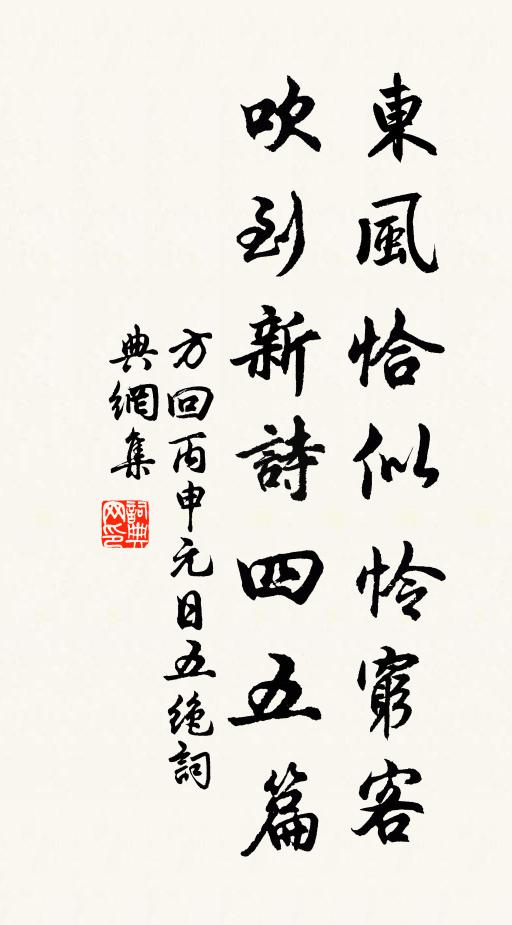 東風恰似怜窮客
吹到新詩四五篇
方回丙申元日五绝詞
典網集
詞典网印